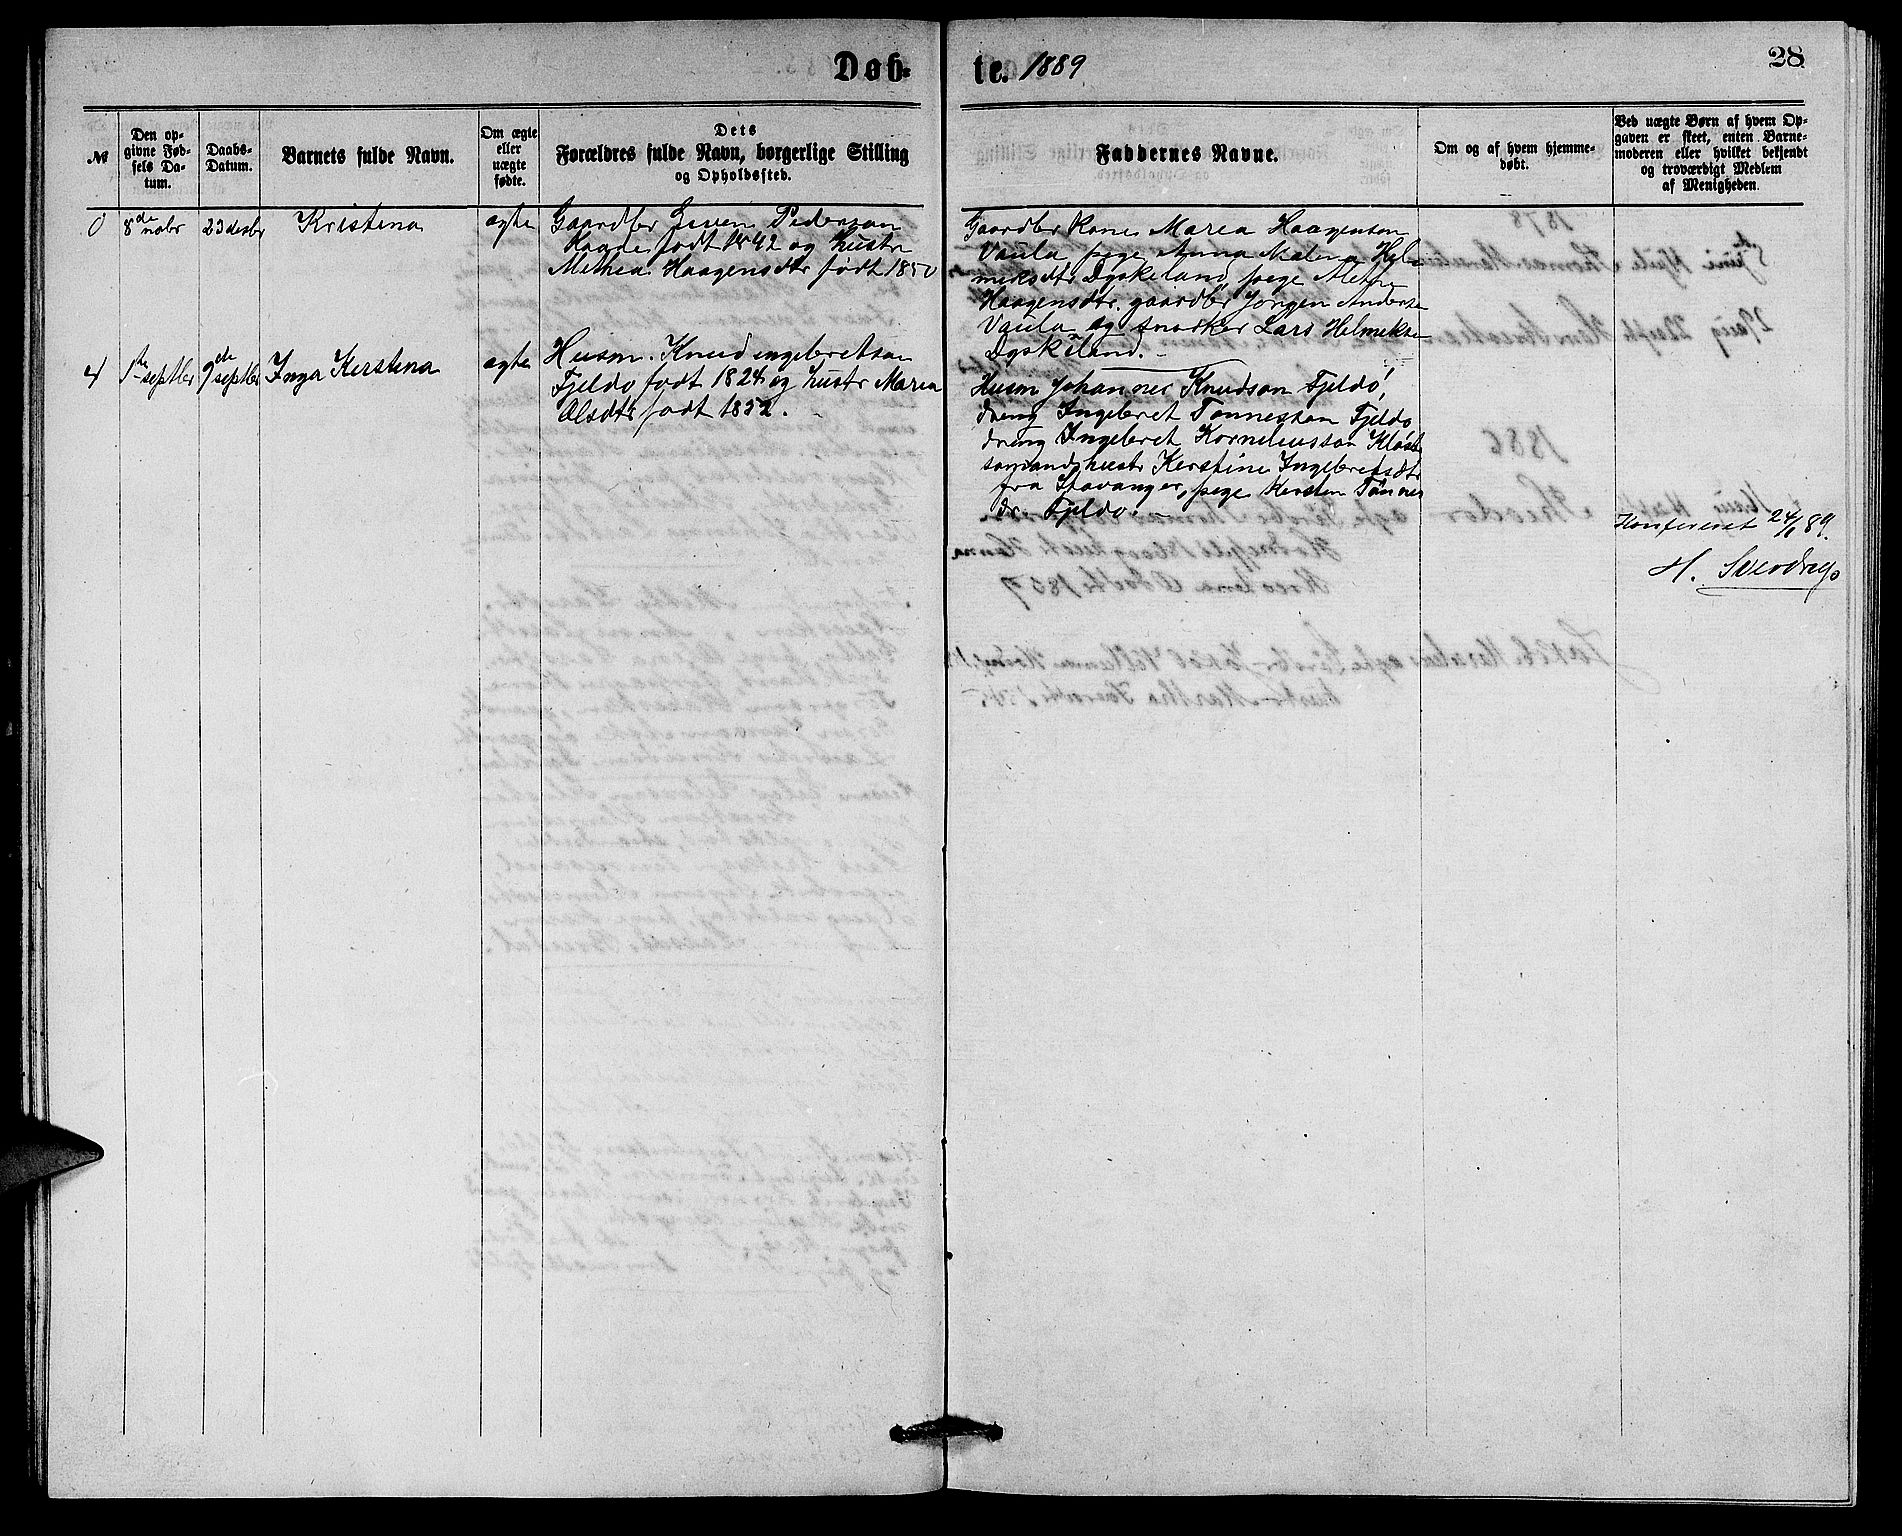 Døb-
te. 1889
28
№
Den op-
givne Fød-
sels Da-
tum.
Daabs-
Datum.
Barnets fulde Navn.
Om ægte
eller
uægte
fødte.
Dets
Forældres fulde Navn, borgerlige Stilling
og Opholdssted.
Faddernes Navne.
Om og af hvem hjemme-
døbt.
Ved uægte Børn af hvem Op-
gaven er skeet, enten Barne-
moderen eller hvilket bekjendt
og troværdigt Medlem
af Menigheden.
0
8de
nobr
23 desbr
Kristena
ægte
Gaardbr Pederson
født 1842 og hustr
Methea Haagensdtr født 1850
Gaardbr Kone Maren Haagenson
Vaula pege Anna Malena Hel-
meksdtr Dyskeland, pege Mette
Haagensdtr. gaardbr Jorgen Anderse
Vaula og Lars Helmeksen
Dyskeland.
4
1ste
septbr
9de
septbr
Inga Kerstena
ægte
Husm. Knud ingebretson
Fjeldo født 1824 og hustr Maria
Olsdtr født 1852.
Husm Johannes Knudson Fjeldo,
dreng Ingebret Tonneson Fjeldo
dreng Ingebret Korneliusson
somandshustr Kerstine Ingebretsdtr
fra Stavanger, pege Kersten Tønnes
dr. Fjeldo.
Konfereret 24/ 89.
H. Sverdrup